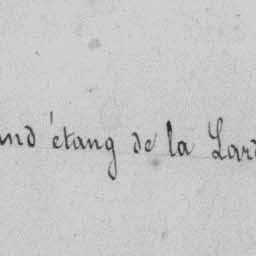 and étang de la Lar